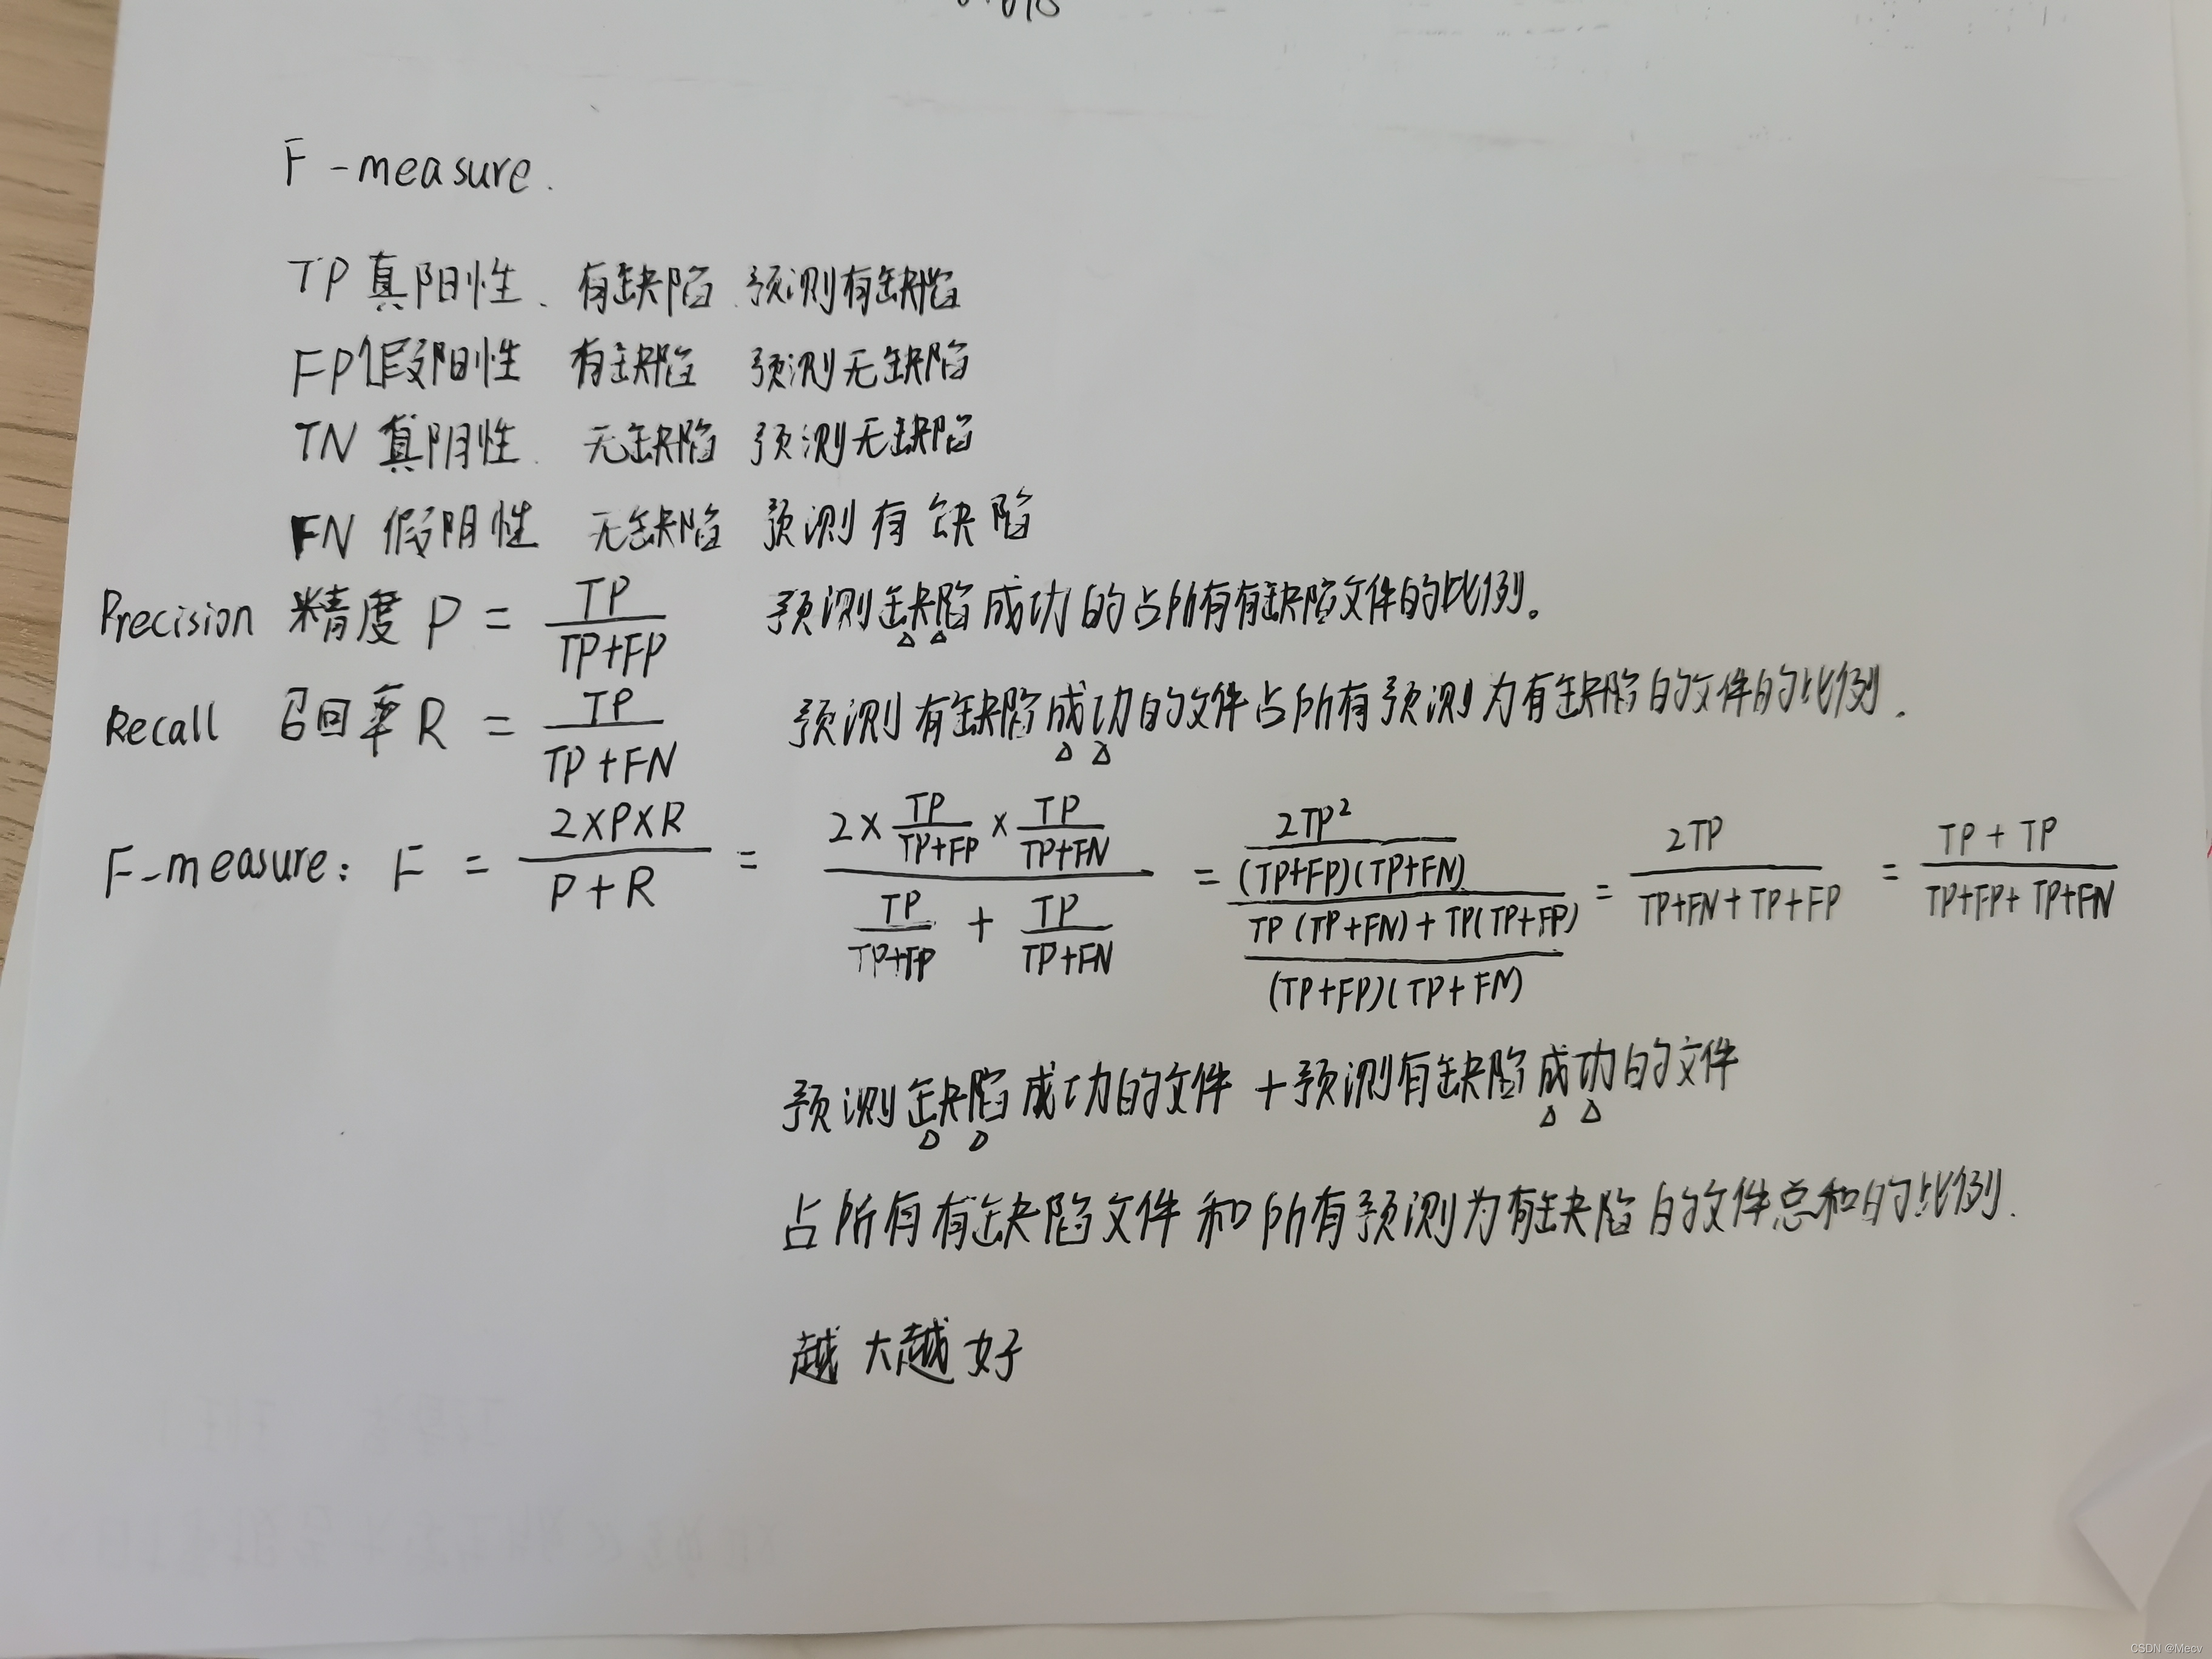 F-measure.
TP 真阳性、有缺陷 预测有缺陷
FP 假阳性 有缺陷 预测无缺陷
TN 真阴性 无缺陷 预测无缺陷
FN 假阴性 无缺陷 预测有缺陷
Precision 精度 P = TP / TP+FP 预测缺陷成功的占所有有缺陷文件的比例。
Recall 召回率 R = TP / TP+FN 预测有缺陷成功的文件占所有预测为有缺陷的文件的比例.
F-measure: F = 2×P×R / P+R = (2× TP/TP+FP × TP/TP+FN) / (TP/TP+FP + TP/TP+FN) = (2TP² / (TP+FP)(TP+FN)) / (TP(TP+FN)+TP(TP+FP) / (TP+FP)(TP+FN)) = 2TP / TP+FN+TP+FP = TP+TP / TP+FP+TP+FN
预测缺陷成功的文件+预测有缺陷成功的文件
占所有有缺陷文件和所有预测为有缺陷的文件总和的比例.
越大越好
CSDN @Mecv